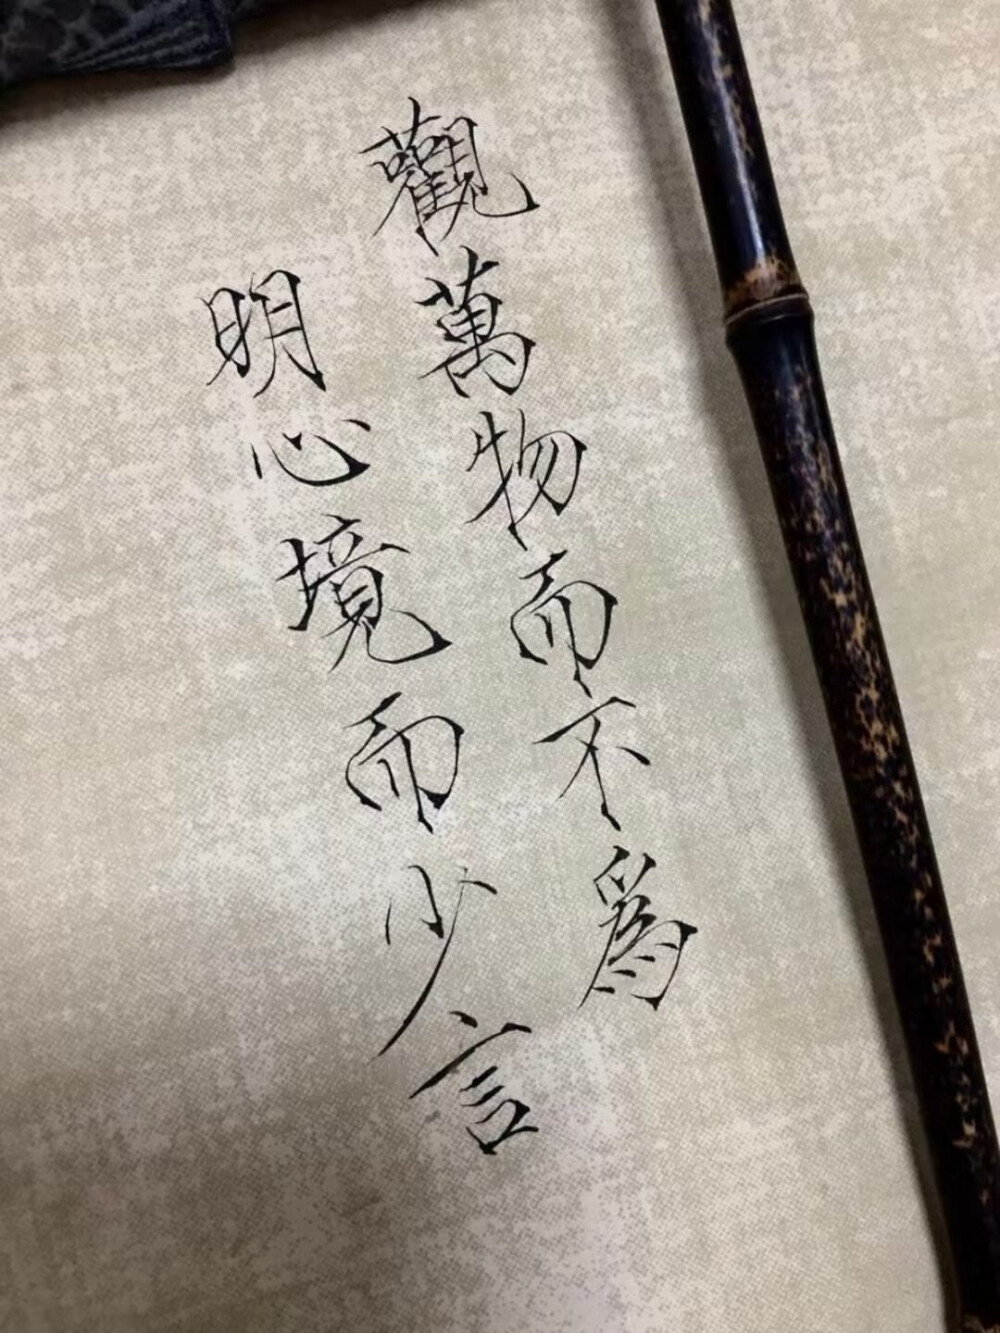 觀萬物而不爲
明心境而少言